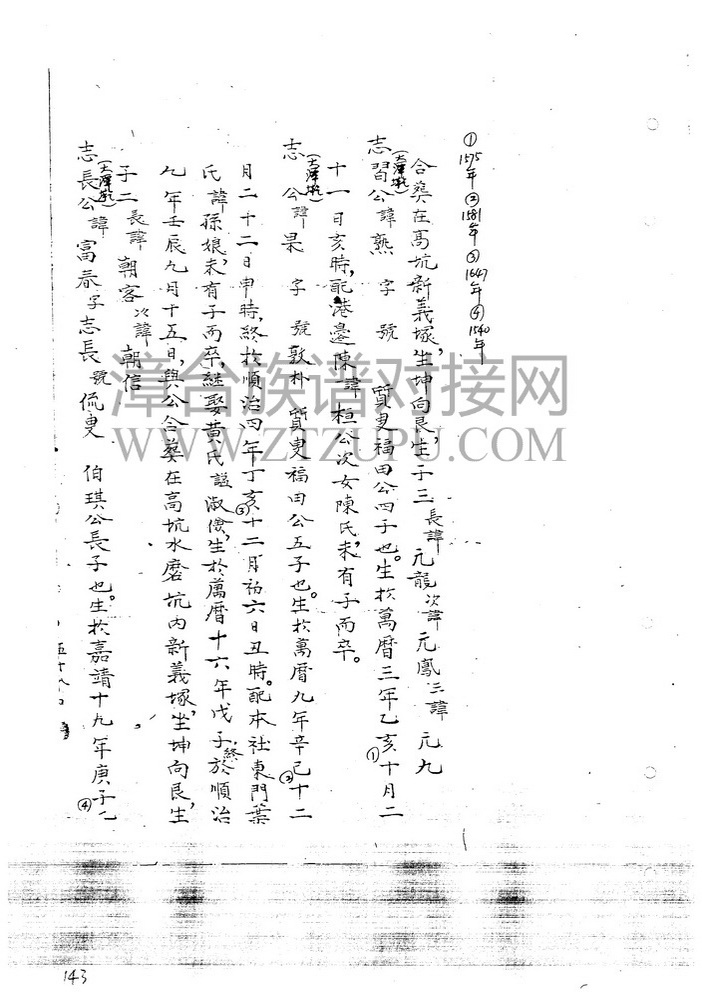 ①1575年②1581年③1647年④1540年
合葬在高坑新義塚，坐坤向艮，生子三長諱元龍次諱元鳳三諱元九
志習公諱熟字號 質叟福田公四子也。生於萬曆三年乙亥十月二
①
十一日亥時，配港邊陳諱桓公次女陳氏，未有子而卒。
志 公諱杲字號敦朴 質叟福田公五子也。生於萬曆九年辛巳十二
②
月二十二日申時，終於順治四年丁亥十二月初六日丑時。配本社東門葉
③
氏諱孫娘，未有子而卒，継娶黃氏諡淑儉，生於萬曆十六年戊子，終於順治
九年壬辰九月十五日，與公合葬在高坑水磨坑内新義塚，坐坤向艮，生
子二長諱朝客次諱朝信
志長公諱富春字志長號侃叟 伯琪公長子也。生於嘉靖十九年庚子
④
漳台族谱对接网
WWW.ZTZUPU.COM
143